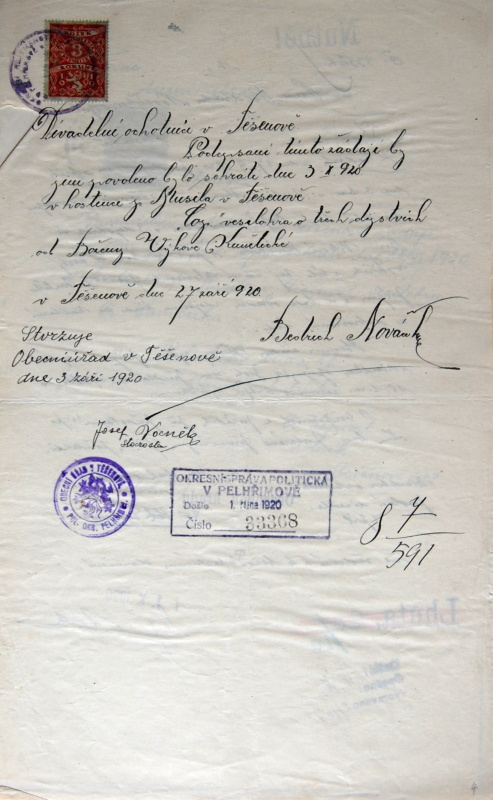 KOLEK
3
KORUNY
Divadelní ochotníci v Těšenově
Podepsaní tímto žádají by
jim povoleno bylo sehráti dne 3 X 920
v hostinci p. Musila v Těšenově
veselohra o třech dějstvích
od Boženy Vikové Kunětické
v Těšenově dne 27 září 920.
Bedřich Novák
Stvrzuje
Obecní úřad v Těšenově
dne 3 září 1920
Josef
starosta
OBECNÍ ÚŘAD V TĚŠENOVĚ
POL. OKR. PELHŘIMOV.
OKRESNÍ SPRÁVA POLITICKÁ
V PELHŘIMOVĚ
Došlo 1. října 1920
Číslo 33368
8 7/591